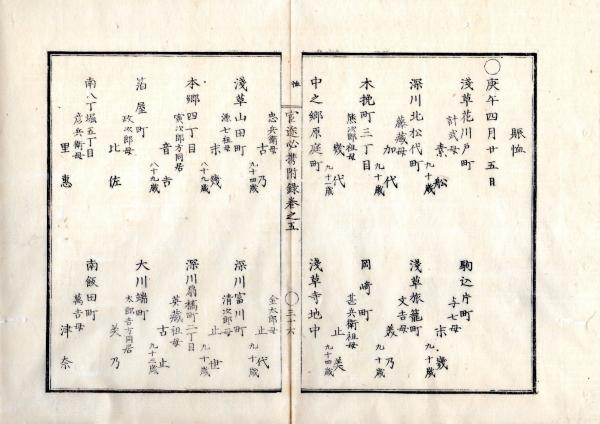 賑恤
〇庚午四月廿五日
淺草花川戸町
計武母
素船
九十歳
駒込片町
与七母
米幾
深川北松代町
藤藏母
加代
九十歳
淺草旅籠町
文吉母
義乃
九十歳
木挽町三丁目
熊次郎祖母
幾代
岡崎町
甚兵衛祖母
止美
九十四歳
中之郷原庭町
淺草寺地中
恤
官途必携附録巻之五
〇三十六
忠兵衛母
古乃
九十四歳
金太郎母
止代
九十歳
淺草山田町
源七祖母
米幾
八十九歳
深川富川町
清次郎母
止世
九十歳
本郷四丁目
寅次郎方同居
音吉
八十九歳
深川扇橋町二丁目
英藏祖母
古止
九十三歳
箔屋町
政次郎母
比佐
大川端町
太郎吉方同居
美乃
南八丁堀五丁目
彦兵衛母
里惠
南飯田町
萬吉母
津奈